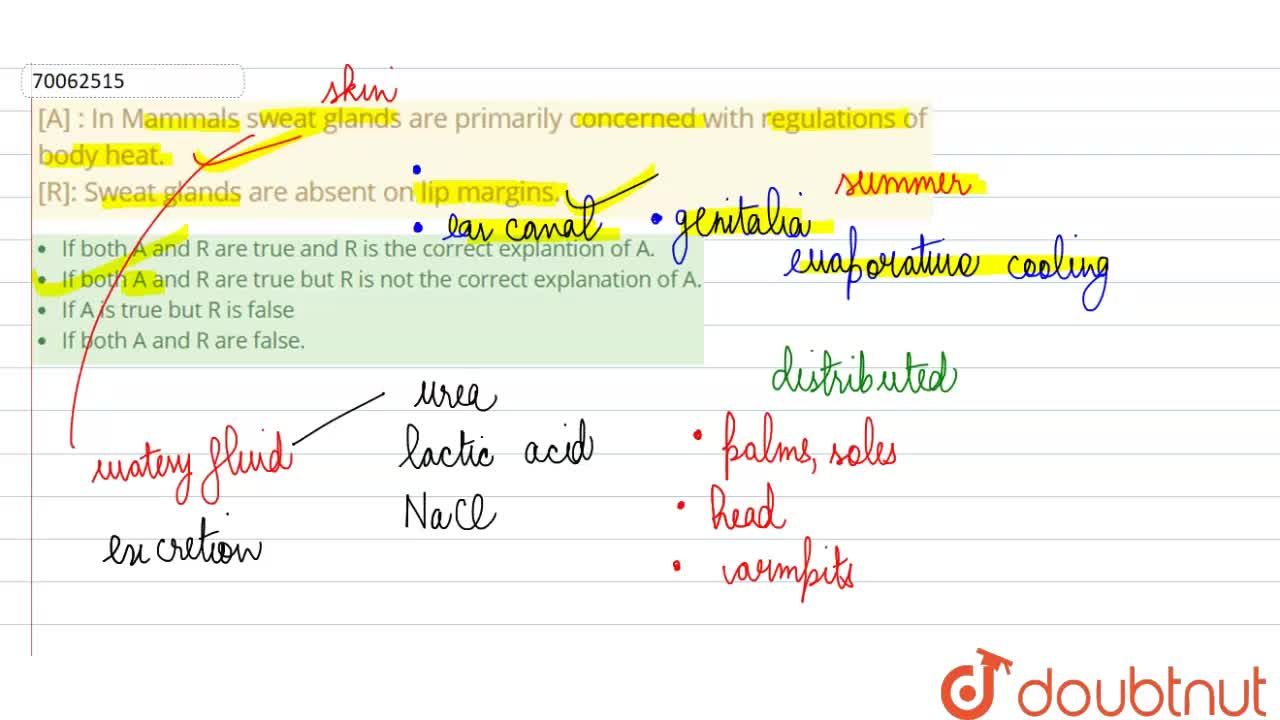 70062515
skin
[A] : In Mammals sweat glands are primarily concerned with regulations of
body heat.
[R]: Sweat glands are absent on lip margins.
summer
• ear canal • genitalia
evaporative cooling
• If both A and R are true and R is the correct explantion of A.
• If both A and R are true but R is not the correct explanation of A.
• If A is true but R is false
• If both A and R are false.
distributed
urea
watery fluid
lactic acid
• palms, soles
NaCl
• head
excretion
• armpits
doubtnut